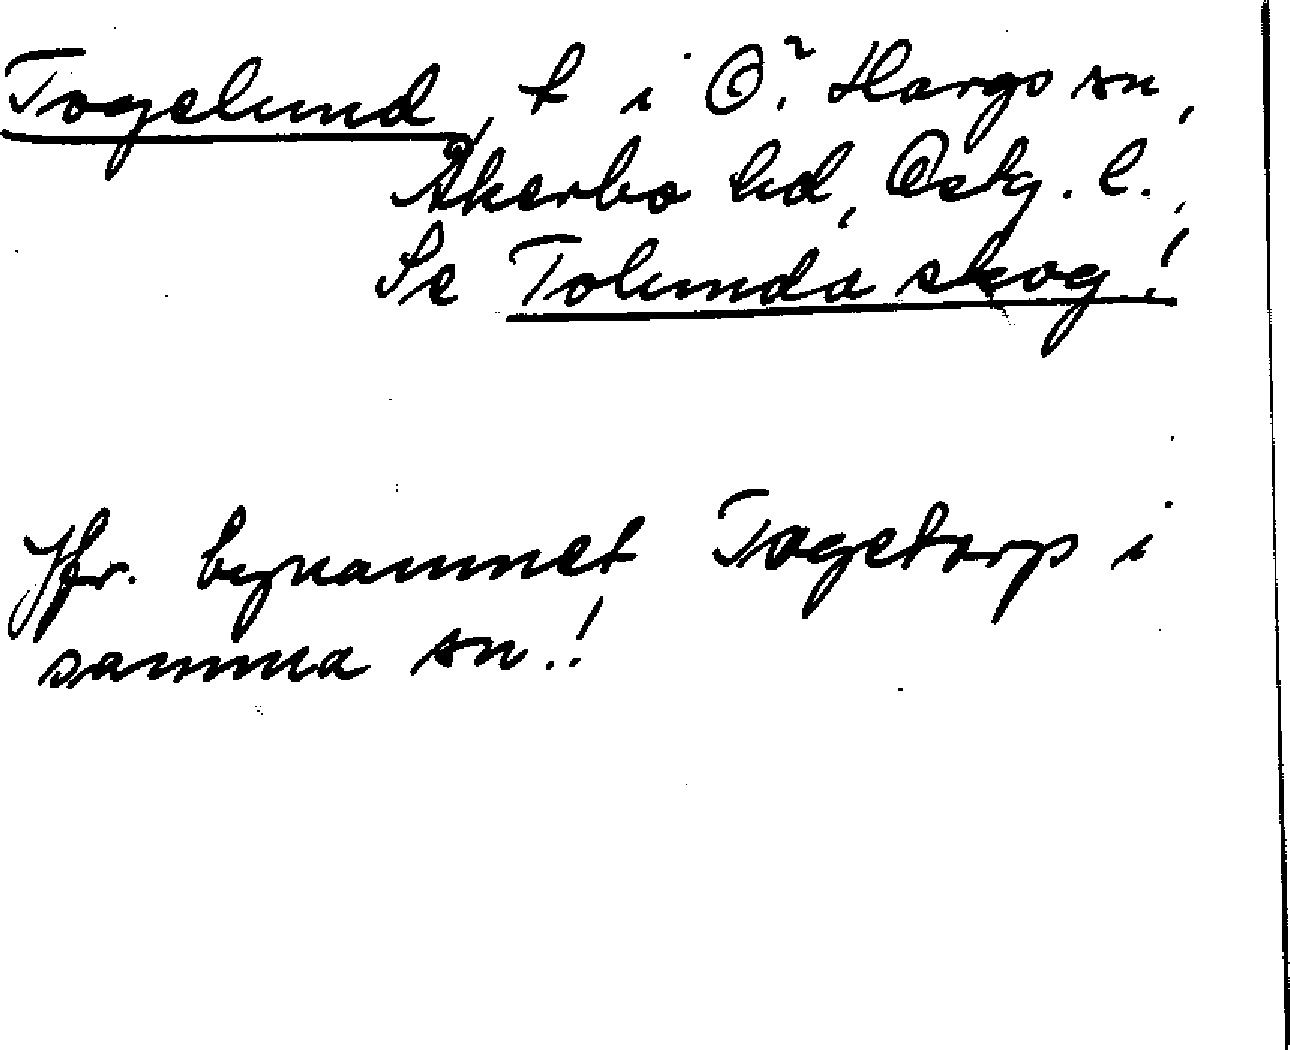 Togelund, t i Ö. Hargs sn,
Åkerbo hd, Östg. l.,
Se Tolunda skog!
Jfr. bynamnet Togetorp i
samma sn.!